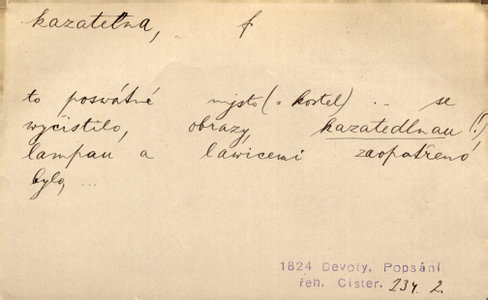 kazatelna, f
to poswátné mjsto (= kostel) .. se
wyčistilo, obrazy, kazatedlnau (!)
lampau a lawicemi zaopatřeno
bylo, ...
1824 Devoty, Popsání
řeh. Cister. 234. 2.